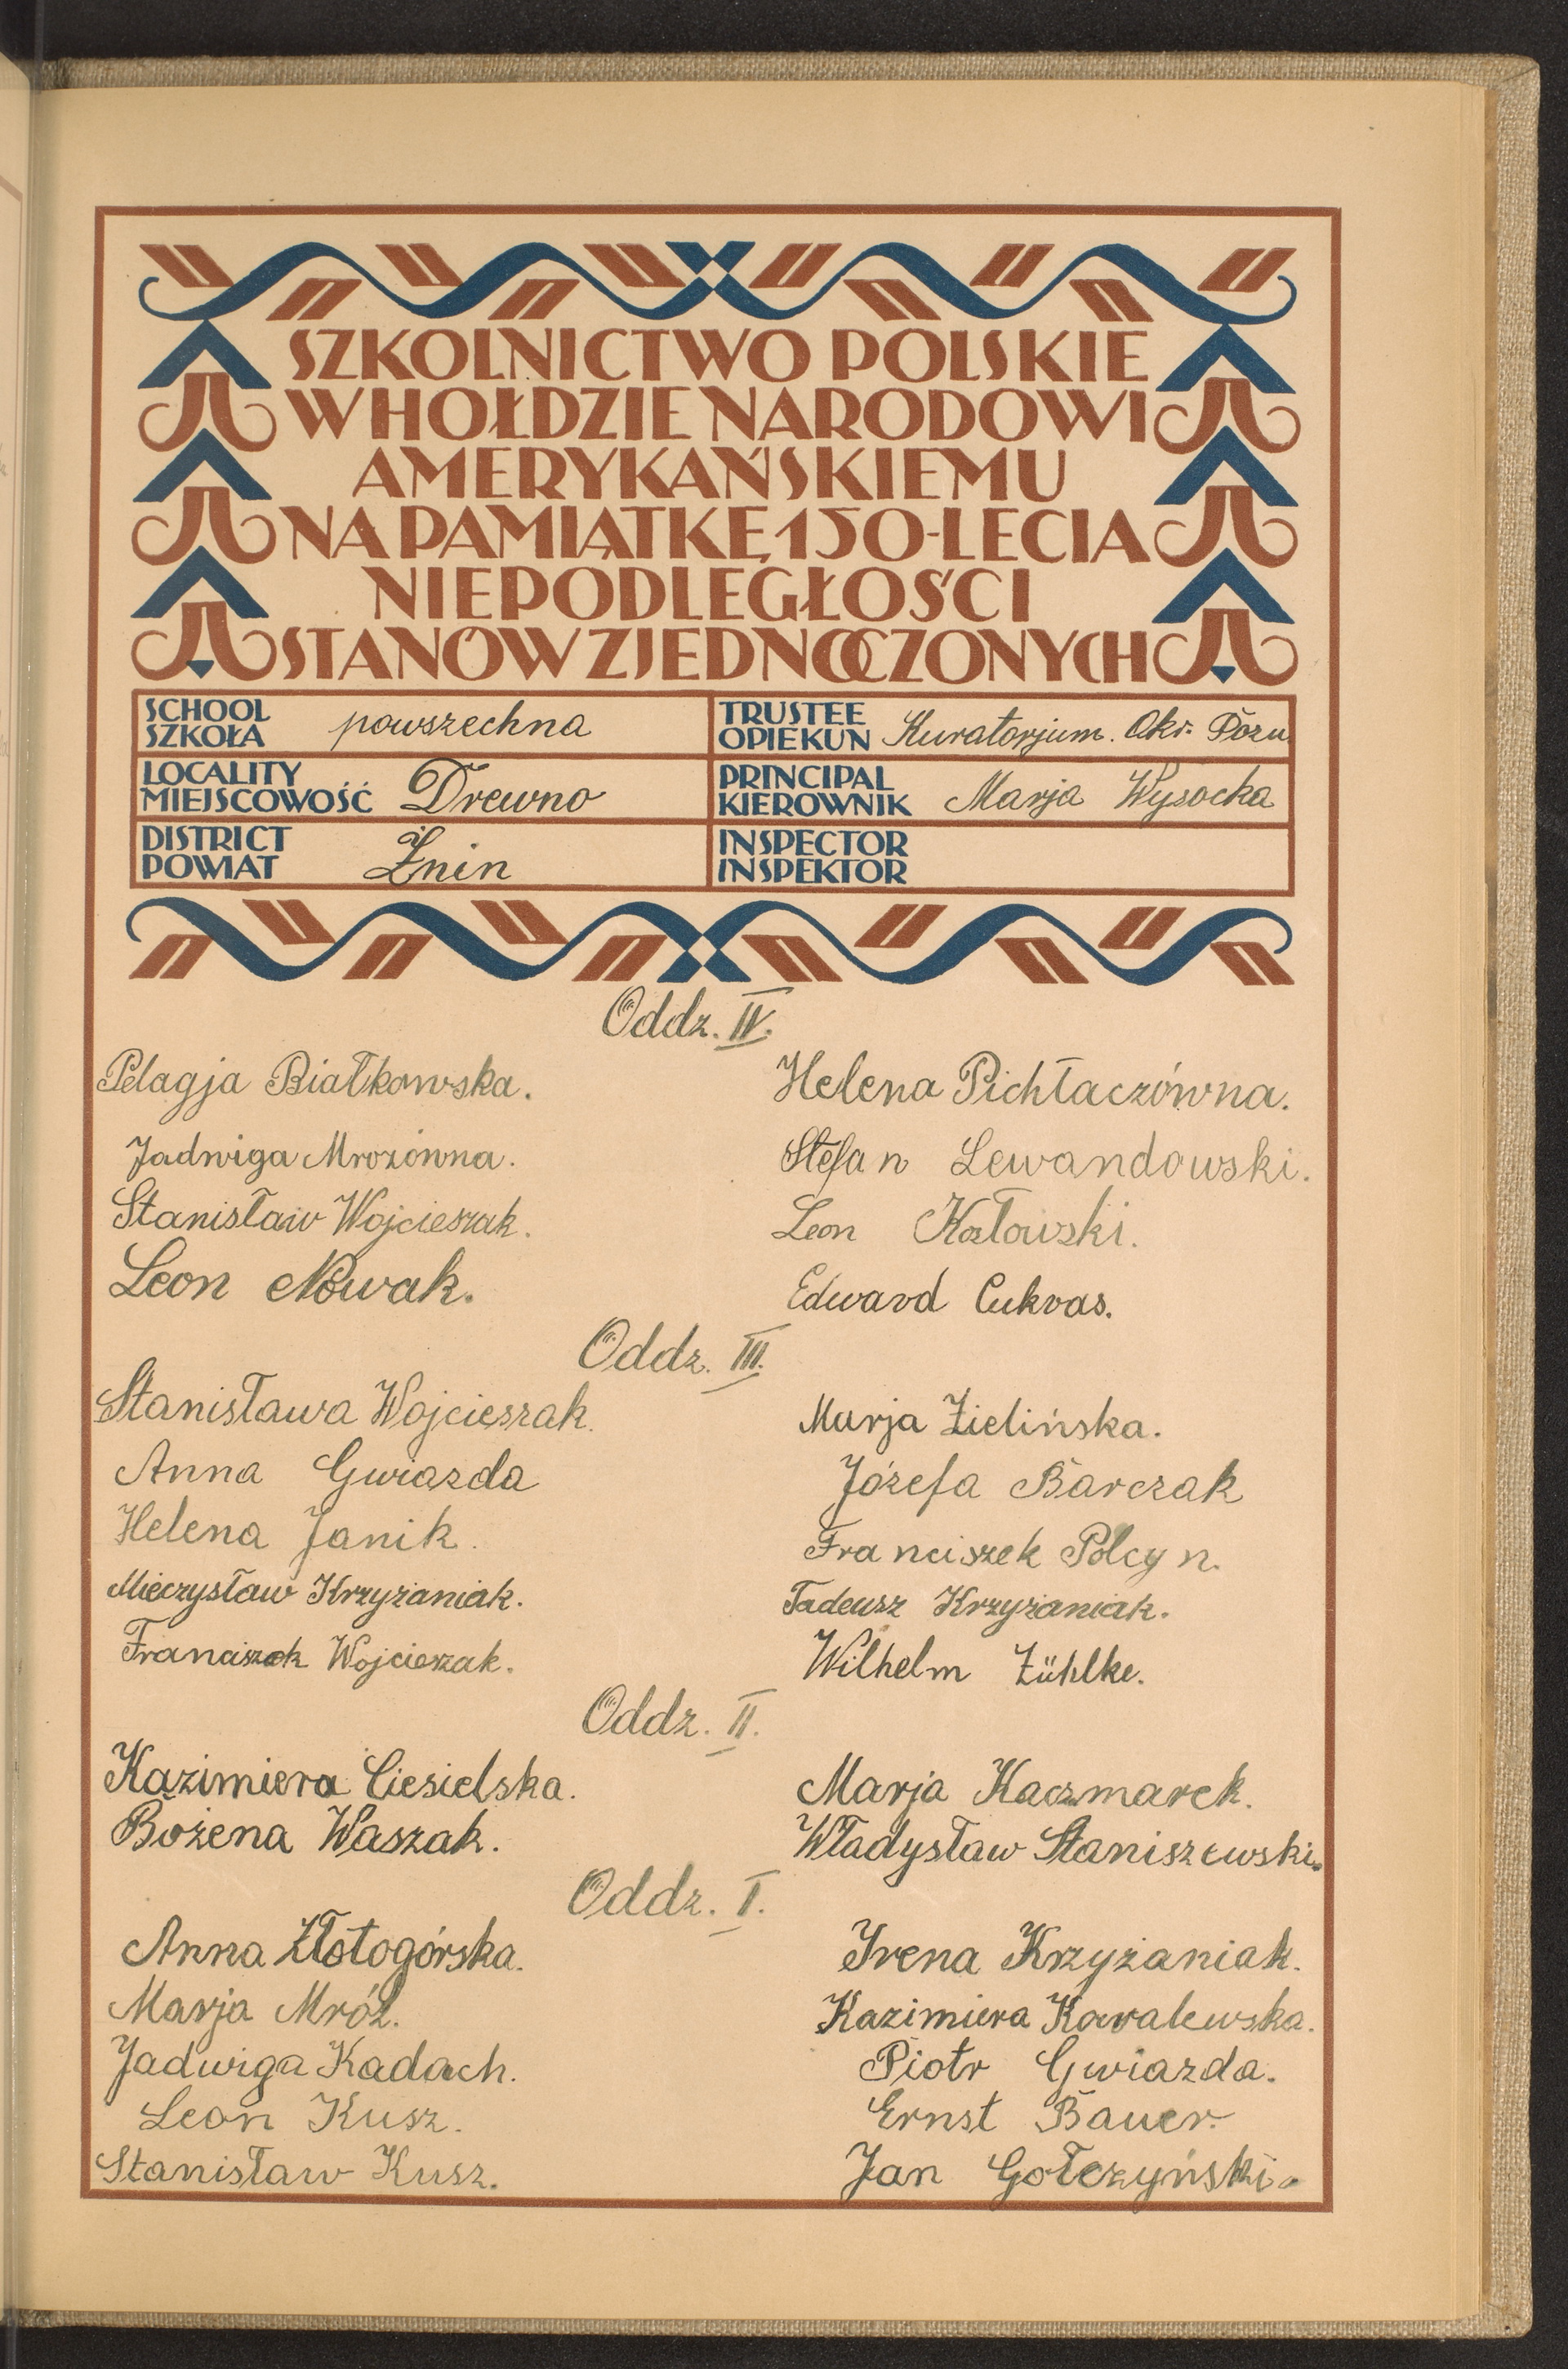 SZKOLNICTWO POLSKIE
W HOŁDZIE NARODOWI
AMERYKAŃSKIEMU
NA PAMIĄTKĘ 150-LECIA
NIEPODLEGŁOŚCI
STANÓW ZJEDNOCZONYCH
SCHOOL
SZKOŁA powszechna
TRUSTEE
OPIEKUN Kuratorjum. Okr. Pozn.
LOCALITY
MIEJSCOWOŚĆ Drewno
PRINCIPAL
KIEROWNIK Marja Wysocka
DISTRICT
POWIAT Żnin
INSPECTOR
INSPEKTOR
Oddz. IV.
Pelagja Białkowska. Helena Pichłaczówna.
Jadwiga Mrozówna. Stefan Lewandowski.
Stanisław Wojcieszak. Leon Kozłowski.
Leon Nowak. Edward Cukras.
Oddz. III.
Stanisława Wojcieszak. Marja Zielińska.
Anna Gwiazda Józefa Barczak
Helena Janik. Franciszek Polcyn.
Mieczysław Krzyżaniak. Tadeusz Krzyżaniak.
Franciszek Wojcieszak. Wilhelm Zühlke.
Oddz. II.
Kazimiera Ciesielska. Marja Kaczmarek.
Bożena Waszak. Władysław Staniszewski.
Oddz. I.
Anna Złotogórska. Irena Krzyżaniak.
Marja Mróz. Kazimiera Kowalewska.
Jadwiga Kadach. Piotr Gwiazda.
Leon Kusz. Ernst Bauer.
Stanisław Kusz. Jan Gołczyński.